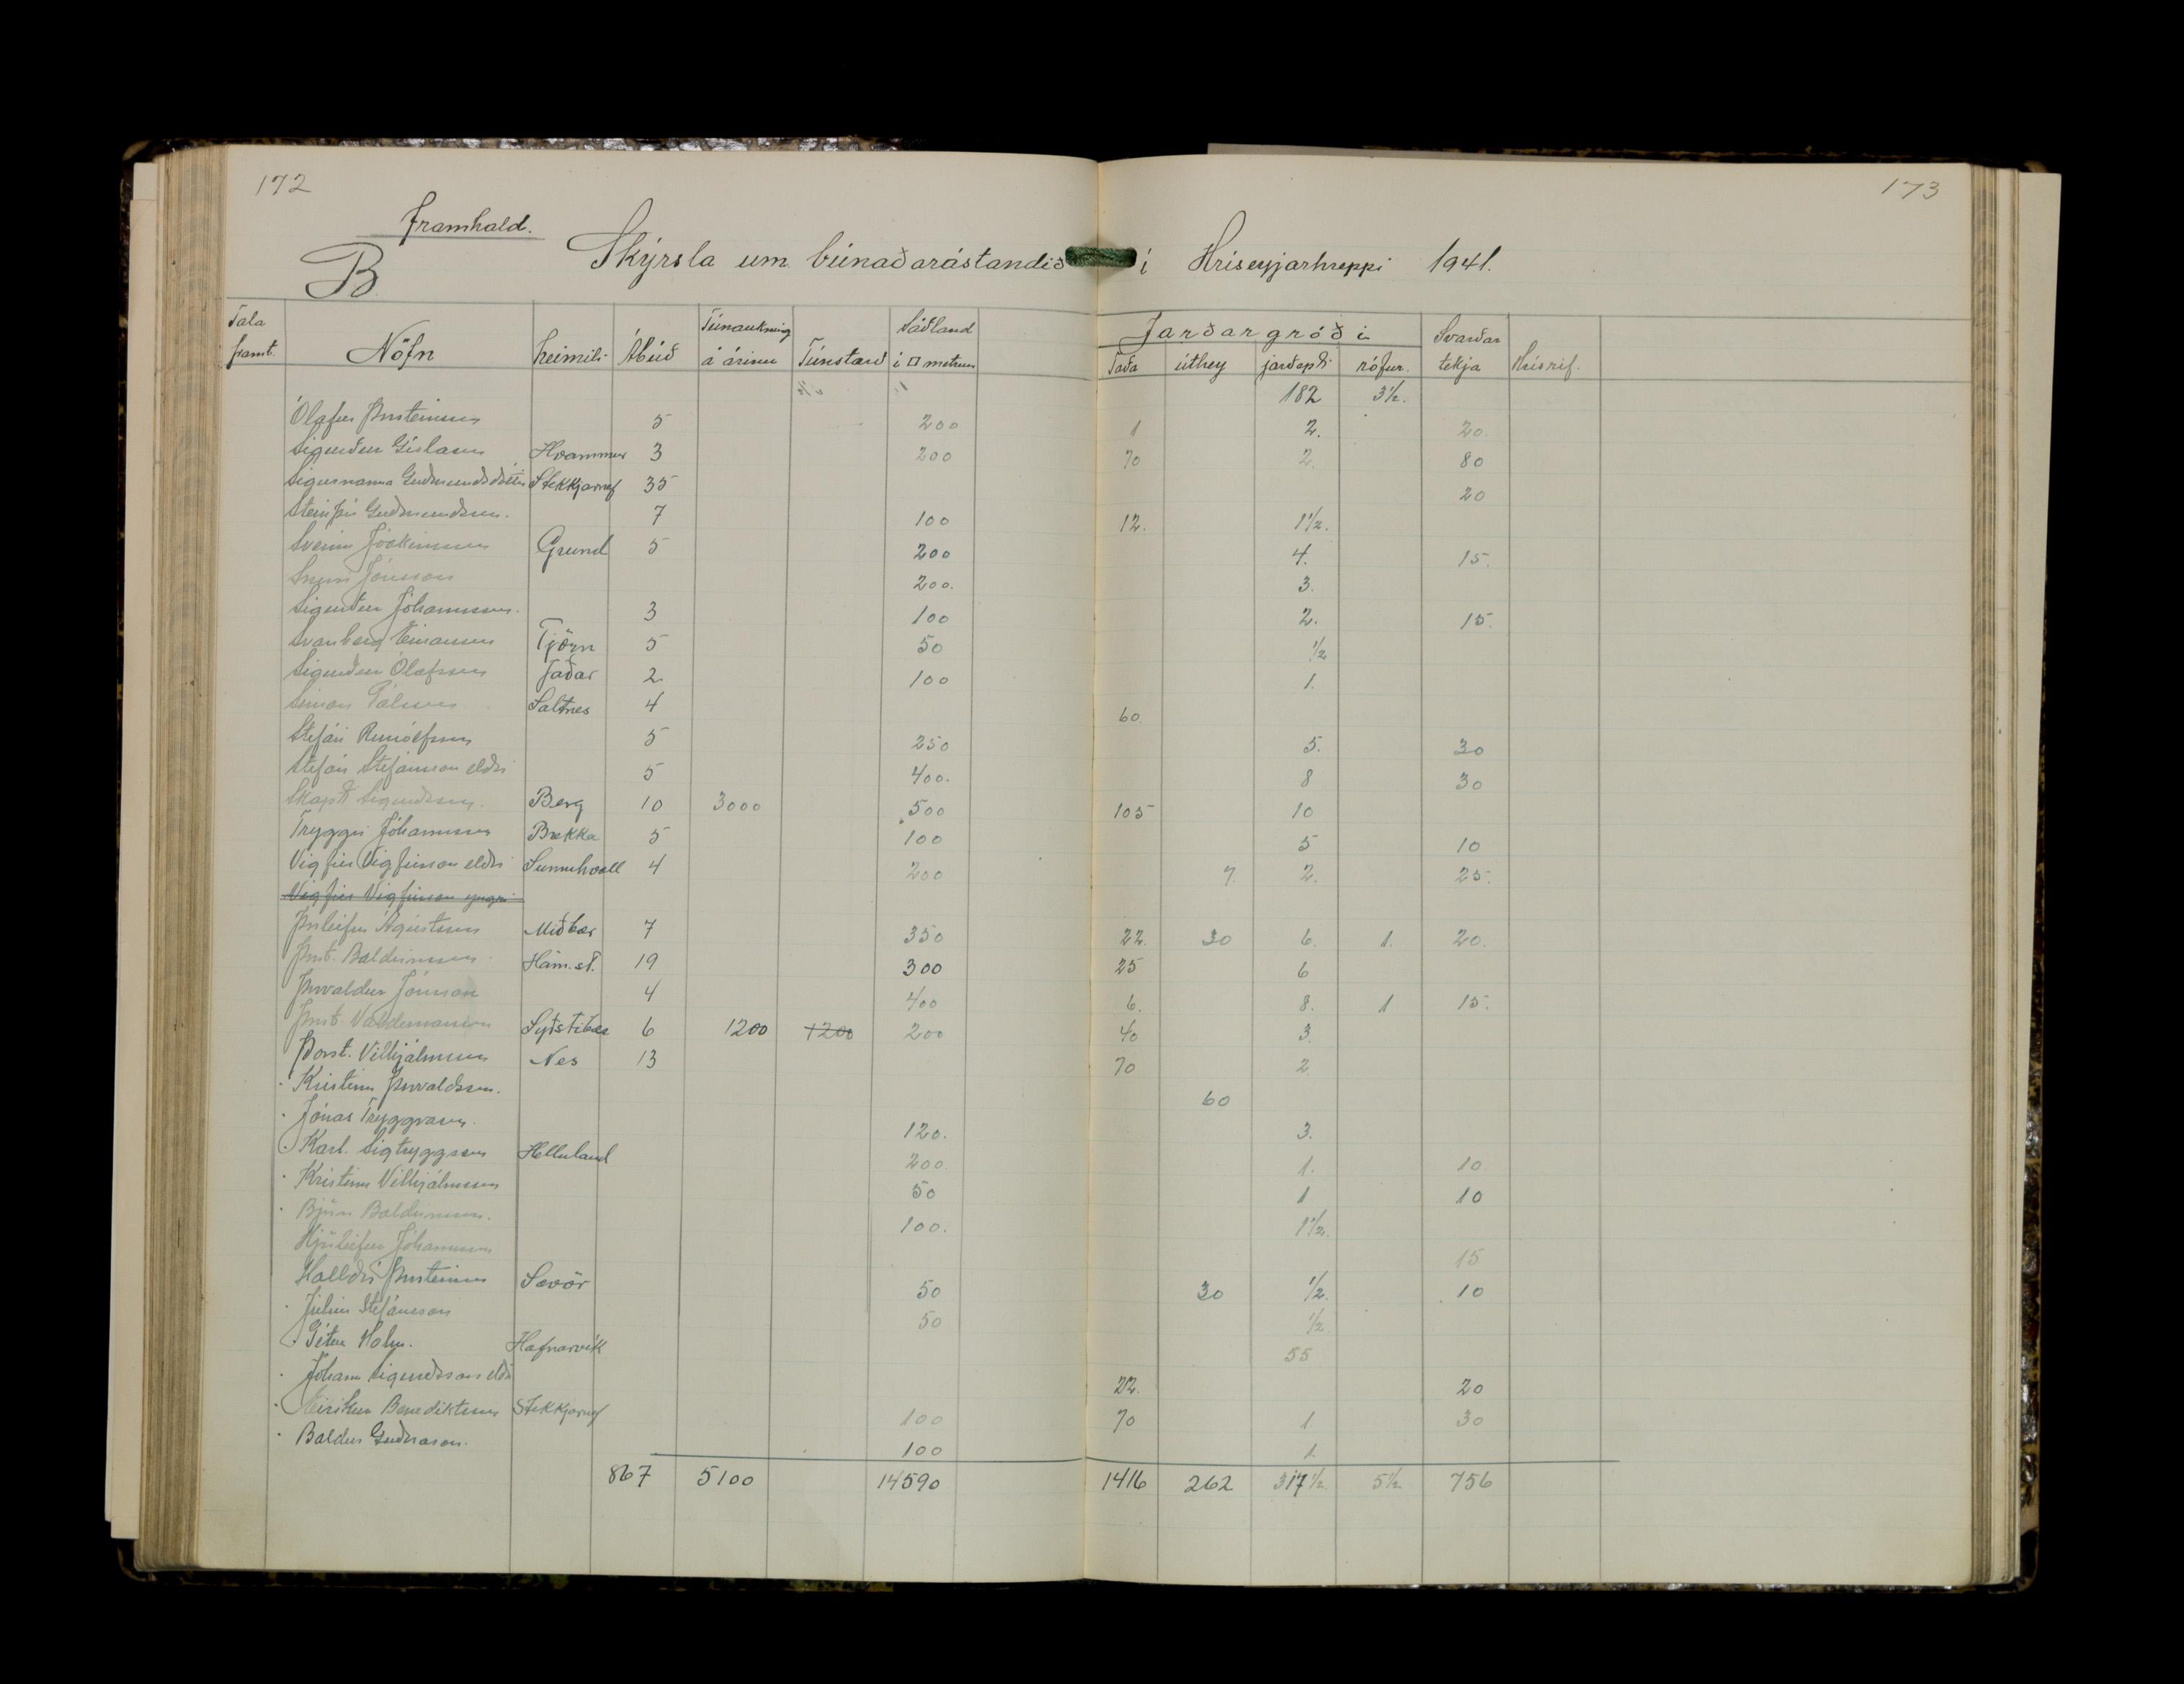 172
173
Framhald.
B Skýrsla um búnaðarástandið í Hríseyjarhreppi 1941.
Tala framt. Nöfn heimili Ábúð Túnaukning á árinu Túnstærð Sáðland í □ metrum Jarðargróði Taða úthey jarðepli rófur. Svarðar tekja Hrísrif.
182 3½.
Ólafur Þorsteinsson 5 200 1 2. 20.
Sigurður Gíslason Hvammur 3 200 70 2. 80
Sigurnanna Guðmundsdóttir Stekkjarnef 35 20
Steinþór Guðmundsson. 7 100 12. 1½.
Sveinn Jóakimsson Grund 5 200 4. 15.
Snorri Jónsson 200. 3.
Sigurður Jóhannsson. 3 100 2. 15.
Svanberg Einarsson Tjörn 5 50 ½
Sigurður Ólafsson Jaðar 2 100 1.
Símon Pálsson Saltnes 4 60.
Stefán Runólfsson 5 250 5. 30
Stefán Stefánsson eldri 5 400. 8 30
Skapti Sigurðsson. Berg 10 3000 500 105 10
Tryggvi Jóhannsson Brekka 5 100 5 10
Vigfús Vigfússon eldri Sunnuhvoll 4 200 7. 2. 25.
Vigfús Vigfússon yngri
Þorleifur Ágústsson Miðbær 7 350 22. 30 6. 1. 20.
Þorst. Baldvinsson Hám.st. 19 300 25 6
Þorvaldur Jónsson 4 400 6. 8. 1 15.
Þorst. Valdemarsson Syðstibær 6 1200 1200 200 40 3.
Þorst. Vilhjálmsson Nes 13 70 2
Kristinn Þorvaldsson. 60
Jónas Tryggvason. 120. 3.
Karl. Sigtryggsson Helluland 200 1. 10
Kristinn Vilhjálmsson 50 1 10
Björn Baldvinsson. 100. 1½.
Hjörleifur Jóhannsson 15
Halldór Þorsteinsson Sævör 50 30 ½. 10
Júlíus Stefánsson 50 ½
Péter Holm. Hafnarvík 55
Jóhann Sigurðsson eldri 22. 20
Eiríkur Benediktsson Stekkjarnef 100 70 1 30
Baldur Guðnason. 100 1.
867 5100 14590 1416 262 317½ 5½ 756